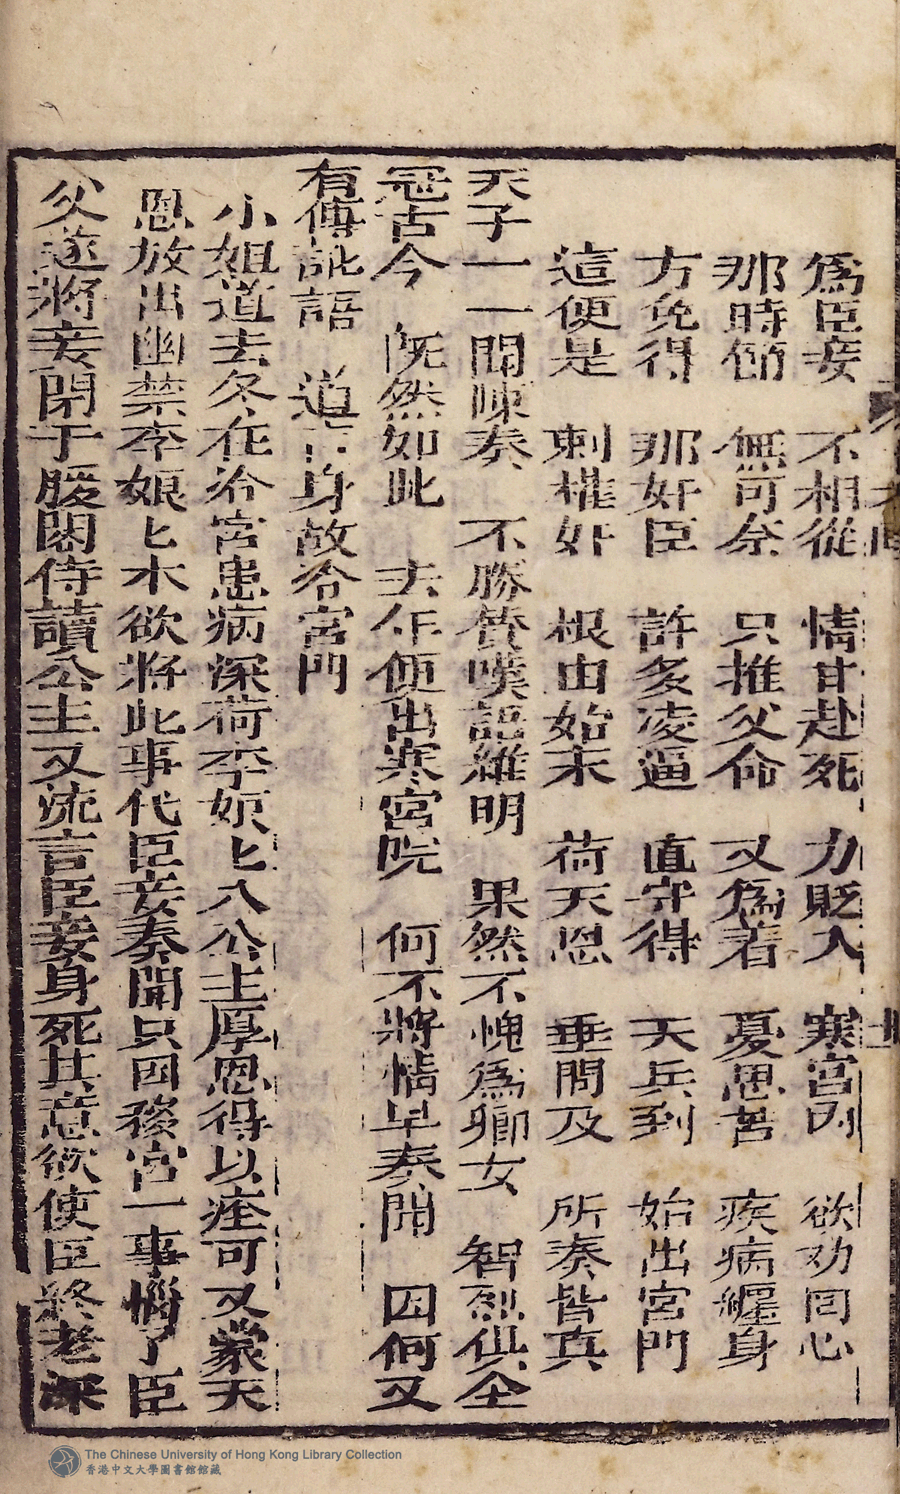 爲臣妾 不相從 情甘赴死 力貶入 寒宮内 欲劝同心
那時節 無可奈 只推父命 又爲着 憂思苦 疾病纒身
方免得 那奸臣 許多凌逼 直守得 天兵到 始出宮門
這便是 刺權奸 根由始末 荷天恩 垂問及 所奏皆真
天子一一聞陳奏 不勝賛嘆語維明 果然不愧爲卿女 智烈俱全
冠古今 既然如此 去年便出寒宮院 何不將情早奏聞 因何又
有傳訛語 道 身故冷宮門
小姐道去冬在冷宮患病深荷李娘匕八公主厚恩得以痊可又蒙天
恩放出幽禁李娘匕木欲將此事代臣妾奏聞只因後宮一事惱了臣
父遂將妾閉于腏閣侍讀公主又流言臣妾身死其意欲使臣終老深
The Chinese University of Hong Kong Library Collection
香港中文大學圖書館館藏